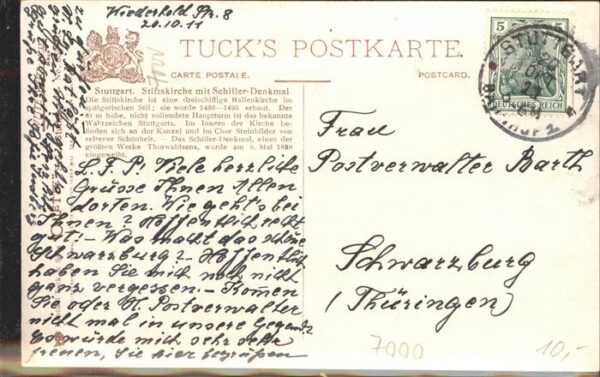 Wiederhold Str. 8
20.10.11
TUCK'S POSTKARTE.
CARTE POSTALE.
POSTCARD.
Stuttgart. Stiftskirche mit Schiller-Denkmal
Die Stiftskirche ist eine dreischiffige Hallenkirche im
spätgotischen Stil; sie wurde 1436—1495 erbaut. Der
hohe, nicht vollendete Hauptturm ist das bekannte
Wahrzeichen Stuttgarts. Im Innern der Kirche be-
finden sich an der Kanzel und im Chor Steinbilder von
seltener Schönheit. — Das Schiller-Denkmal, eines der
größten Werke Thorwaldsens, wurde am 8. Mai 1839
eingeweiht.
L. F. P. Viele herzliche
Grüsse Ihnen Allen
dorten. Wie geht's bei
Ihnen? Hoffentlich recht
gut! - Was macht das schöne
Schwarzburg? - Hoffentlich
haben Sie mich noch nicht
ganz vergessen. - Komen
Sie oder H. Postverwalter
nicht mal in unsere Gegend?
Es würde mich sehr sehr
freuen, Sie hier begrüßen
zu
5
5
DEUTSCHES REICH
STUTTGART
Frau
Postverwalter Barth
Schwarzburg
(Thüringen)
7000
10,-